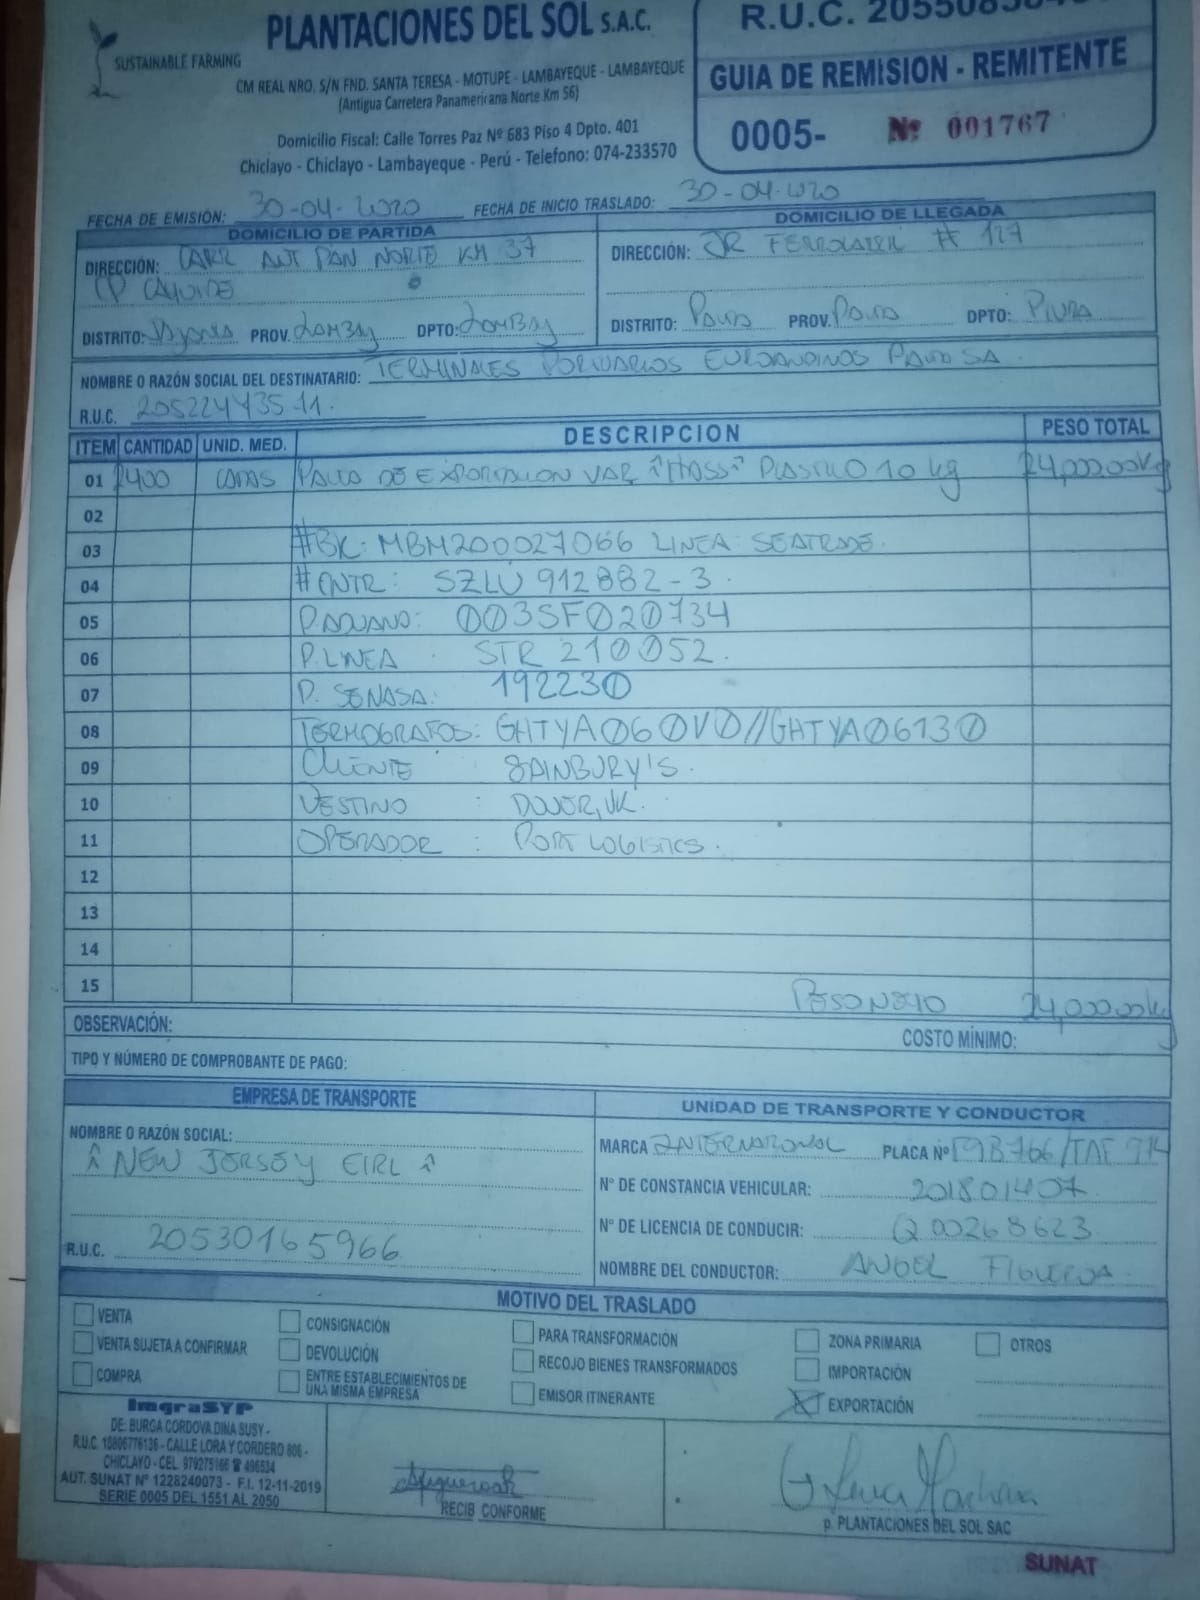 PLANTACIONES DEL SOL S.A.C.
SUSTAINABLE FARMING
CM REAL NRO. S/N FND. SANTA TERESA - MOTUPE - LAMBAYEQUE - LAMBAYEQUE
(Antigua Carretera Panamericana Norte Km 56)
Domicilio Fiscal: Calle Torres Paz Nº 683 Piso 4 Dpto. 401
Chiclayo - Chiclayo - Lambayeque - Perú - Telefono: 074-233570
R.U.C.
GUIA DE REMISION - REMITENTE
0005- Nº 001767
FECHA DE EMISIÓN: 30-04-2020 FECHA DE INICIO TRASLADO: 30-04-2020
DOMICILIO DE PARTIDA
DIRECCIÓN: CARR ANT PAN NORTE KM 37
CP CAHUIDE
DISTRITO: PROV. LAMBAY DPTO: LAMBAY
DOMICILIO DE LLEGADA
DIRECCIÓN: JR FERROCARRIL # 127
DISTRITO: PAITA PROV. PAITA DPTO: PIURA
NOMBRE O RAZÓN SOCIAL DEL DESTINATARIO: TERMINALES PORTUARIOS EUROANDINOS PAITA SA.
R.U.C. 20522473571
ITEM CANTIDAD UNID. MED. DESCRIPCION PESO TOTAL
01 2400 CAJAS PALTA DE EXPORTACION VAR "HASS" PLASTICO 10 kg 24,000.00Kg
02
03 #BK: MBM200027066 LINEA: SEATRADE.
04 #CNTR: SZLU 912882-3.
05 P. ADUANO: 003SF020734
06 P. LINEA : STR 210052.
07 P. SENASA: 192230
08 TERMOGRAFOS: GHTYA060V0//GHTYA06130
09 CLIENTE SAINBURY'S.
10 DESTINO : DOVER, UK.
11 OPERADOR : PORT LOGISTICS.
12
13
14
15 PESO NETO 24,000.00kg
OBSERVACIÓN:
COSTO MÍNIMO:
TIPO Y NÚMERO DE COMPROBANTE DE PAGO:
EMPRESA DE TRANSPORTE
NOMBRE O RAZÓN SOCIAL:
"NEW JERSEY EIRL"
R.U.C. 20530165966
UNIDAD DE TRANSPORTE Y CONDUCTOR
MARCA INTERNATIONAL PLACA Nº T9B766/TAF 974
N° DE CONSTANCIA VEHICULAR: 201801407
N° DE LICENCIA DE CONDUCIR: Q00268623
NOMBRE DEL CONDUCTOR: ANGEL FIGUEROA
MOTIVO DEL TRASLADO
VENTA
VENTA SUJETA A CONFIRMAR
COMPRA
CONSIGNACIÓN
DEVOLUCIÓN
ENTRE ESTABLECIMIENTOS DE
UNA MISMA EMPRESA
PARA TRANSFORMACIÓN
RECOJO BIENES TRANSFORMADOS
EMISOR ITINERANTE
ZONA PRIMARIA
IMPORTACIÓN
EXPORTACIÓN
OTROS
ImgraSYP
DE: BURGA CORDOVA DINA SUSY -
R.U.C. 16806776136 - CALLE LORA Y CORDERO 806 -
CHICLAYO - CEL. 979275166 ☎ 496534
AUT. SUNAT N° 1228240073 - F.I. 12-11-2019
SERIE 0005 DEL 1551 AL 2050
RECIBI CONFORME
p. PLANTACIONES DEL SOL SAC
SUNAT